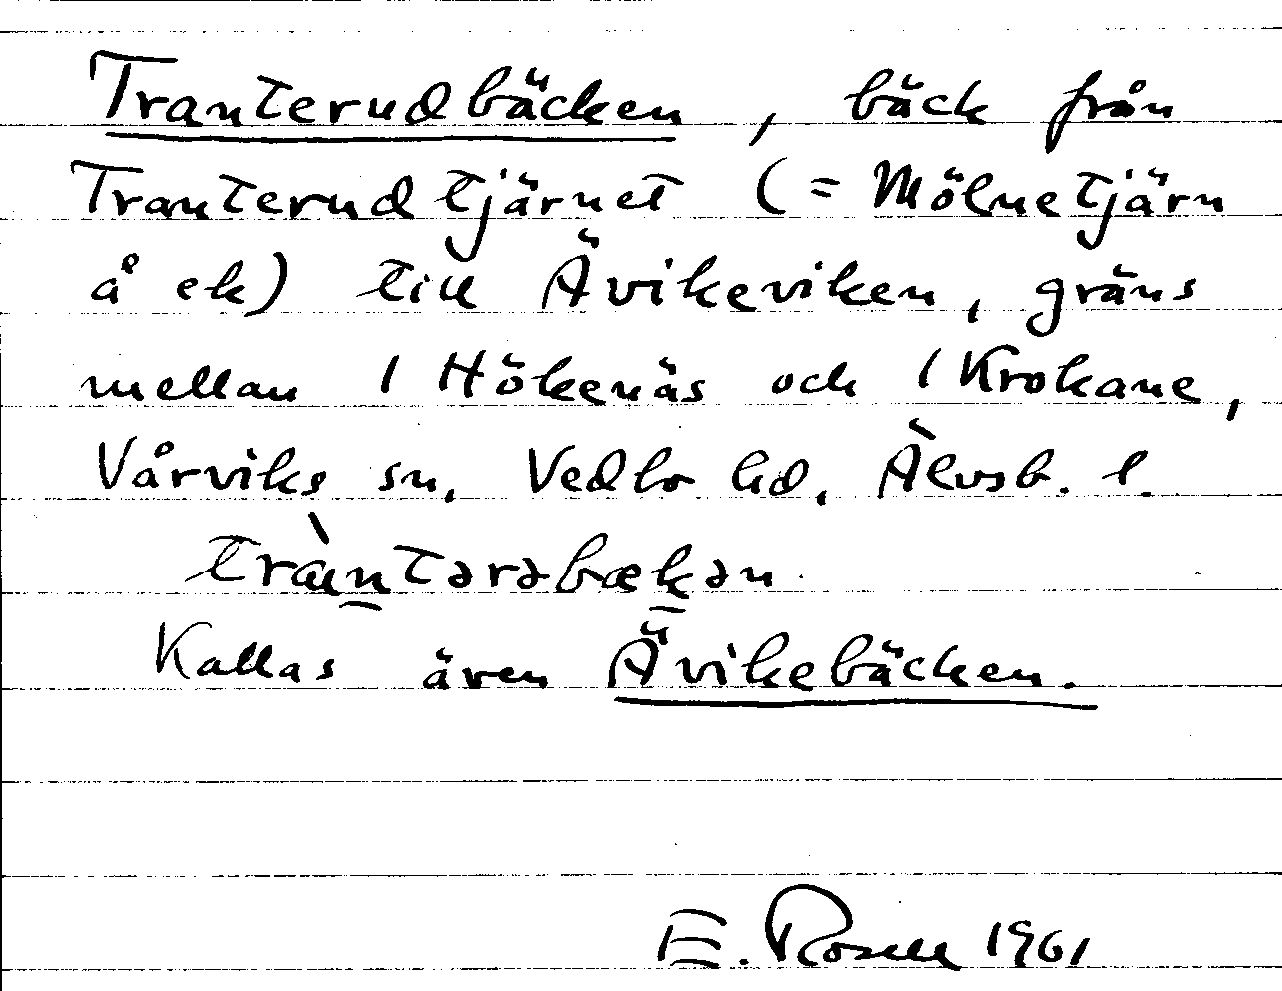 Tranterudbäcken, bäck från
Tranterudtjärnet (= Mölnetjärn
å ek) till Ävikeviken, gräns
mellan 1 Hökenäs och 1 Krokane,
Vårviks sn, Vedbo hd, Älvsb. l.
tràntərəbækən.
Kallas även Ävikebäcken.
E. Rosell 1961